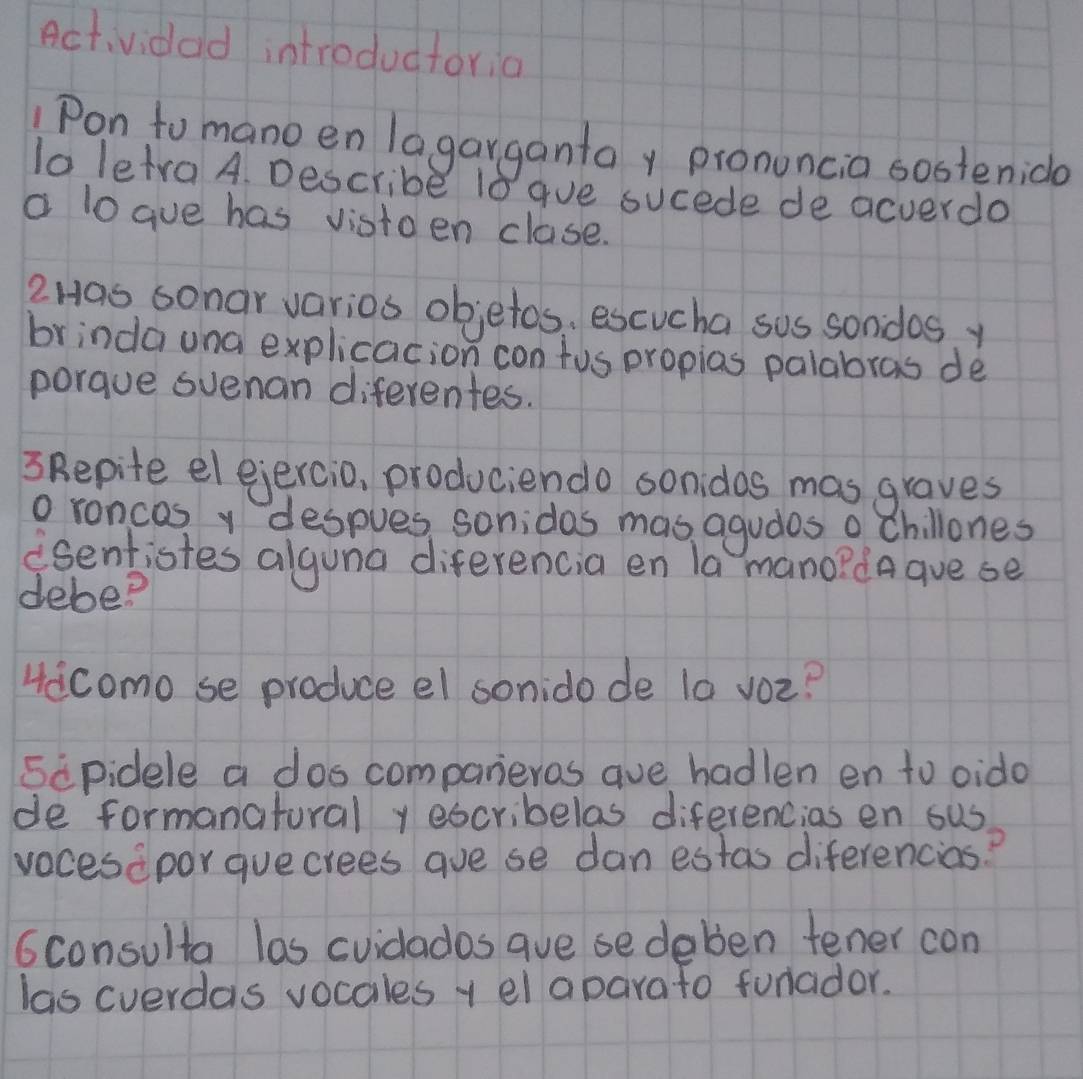 Actividad introductoria
1 Pon tu mano en la garganta y pronuncia sostenido
la letra A. Describe lo que sucede de acuerdo
a lo que has visto en clase.
2 Has sonar varios objetos, escucha sus sondos y
brinda una explicacion con tus propias palabras de
porque suenan diferentes.
3 Repite el ejercio, produciendo sonidos mas graves
o roncos y despues sonidos mas agudos o chillones
¿sentistes alguna diferencia en la mano? ¿A que se
debe?
4 ¿como se produce el sonido de la voz?
5 ¿pidele a dos compañeros que hadlen en tu oido
de forma natural y escribe las diferencias en sus
voces ¿por que crees que se dan estas diferencias?
6 consulta los cuidados que se deben tener con
las cuerdas vocales y el aparato funador.